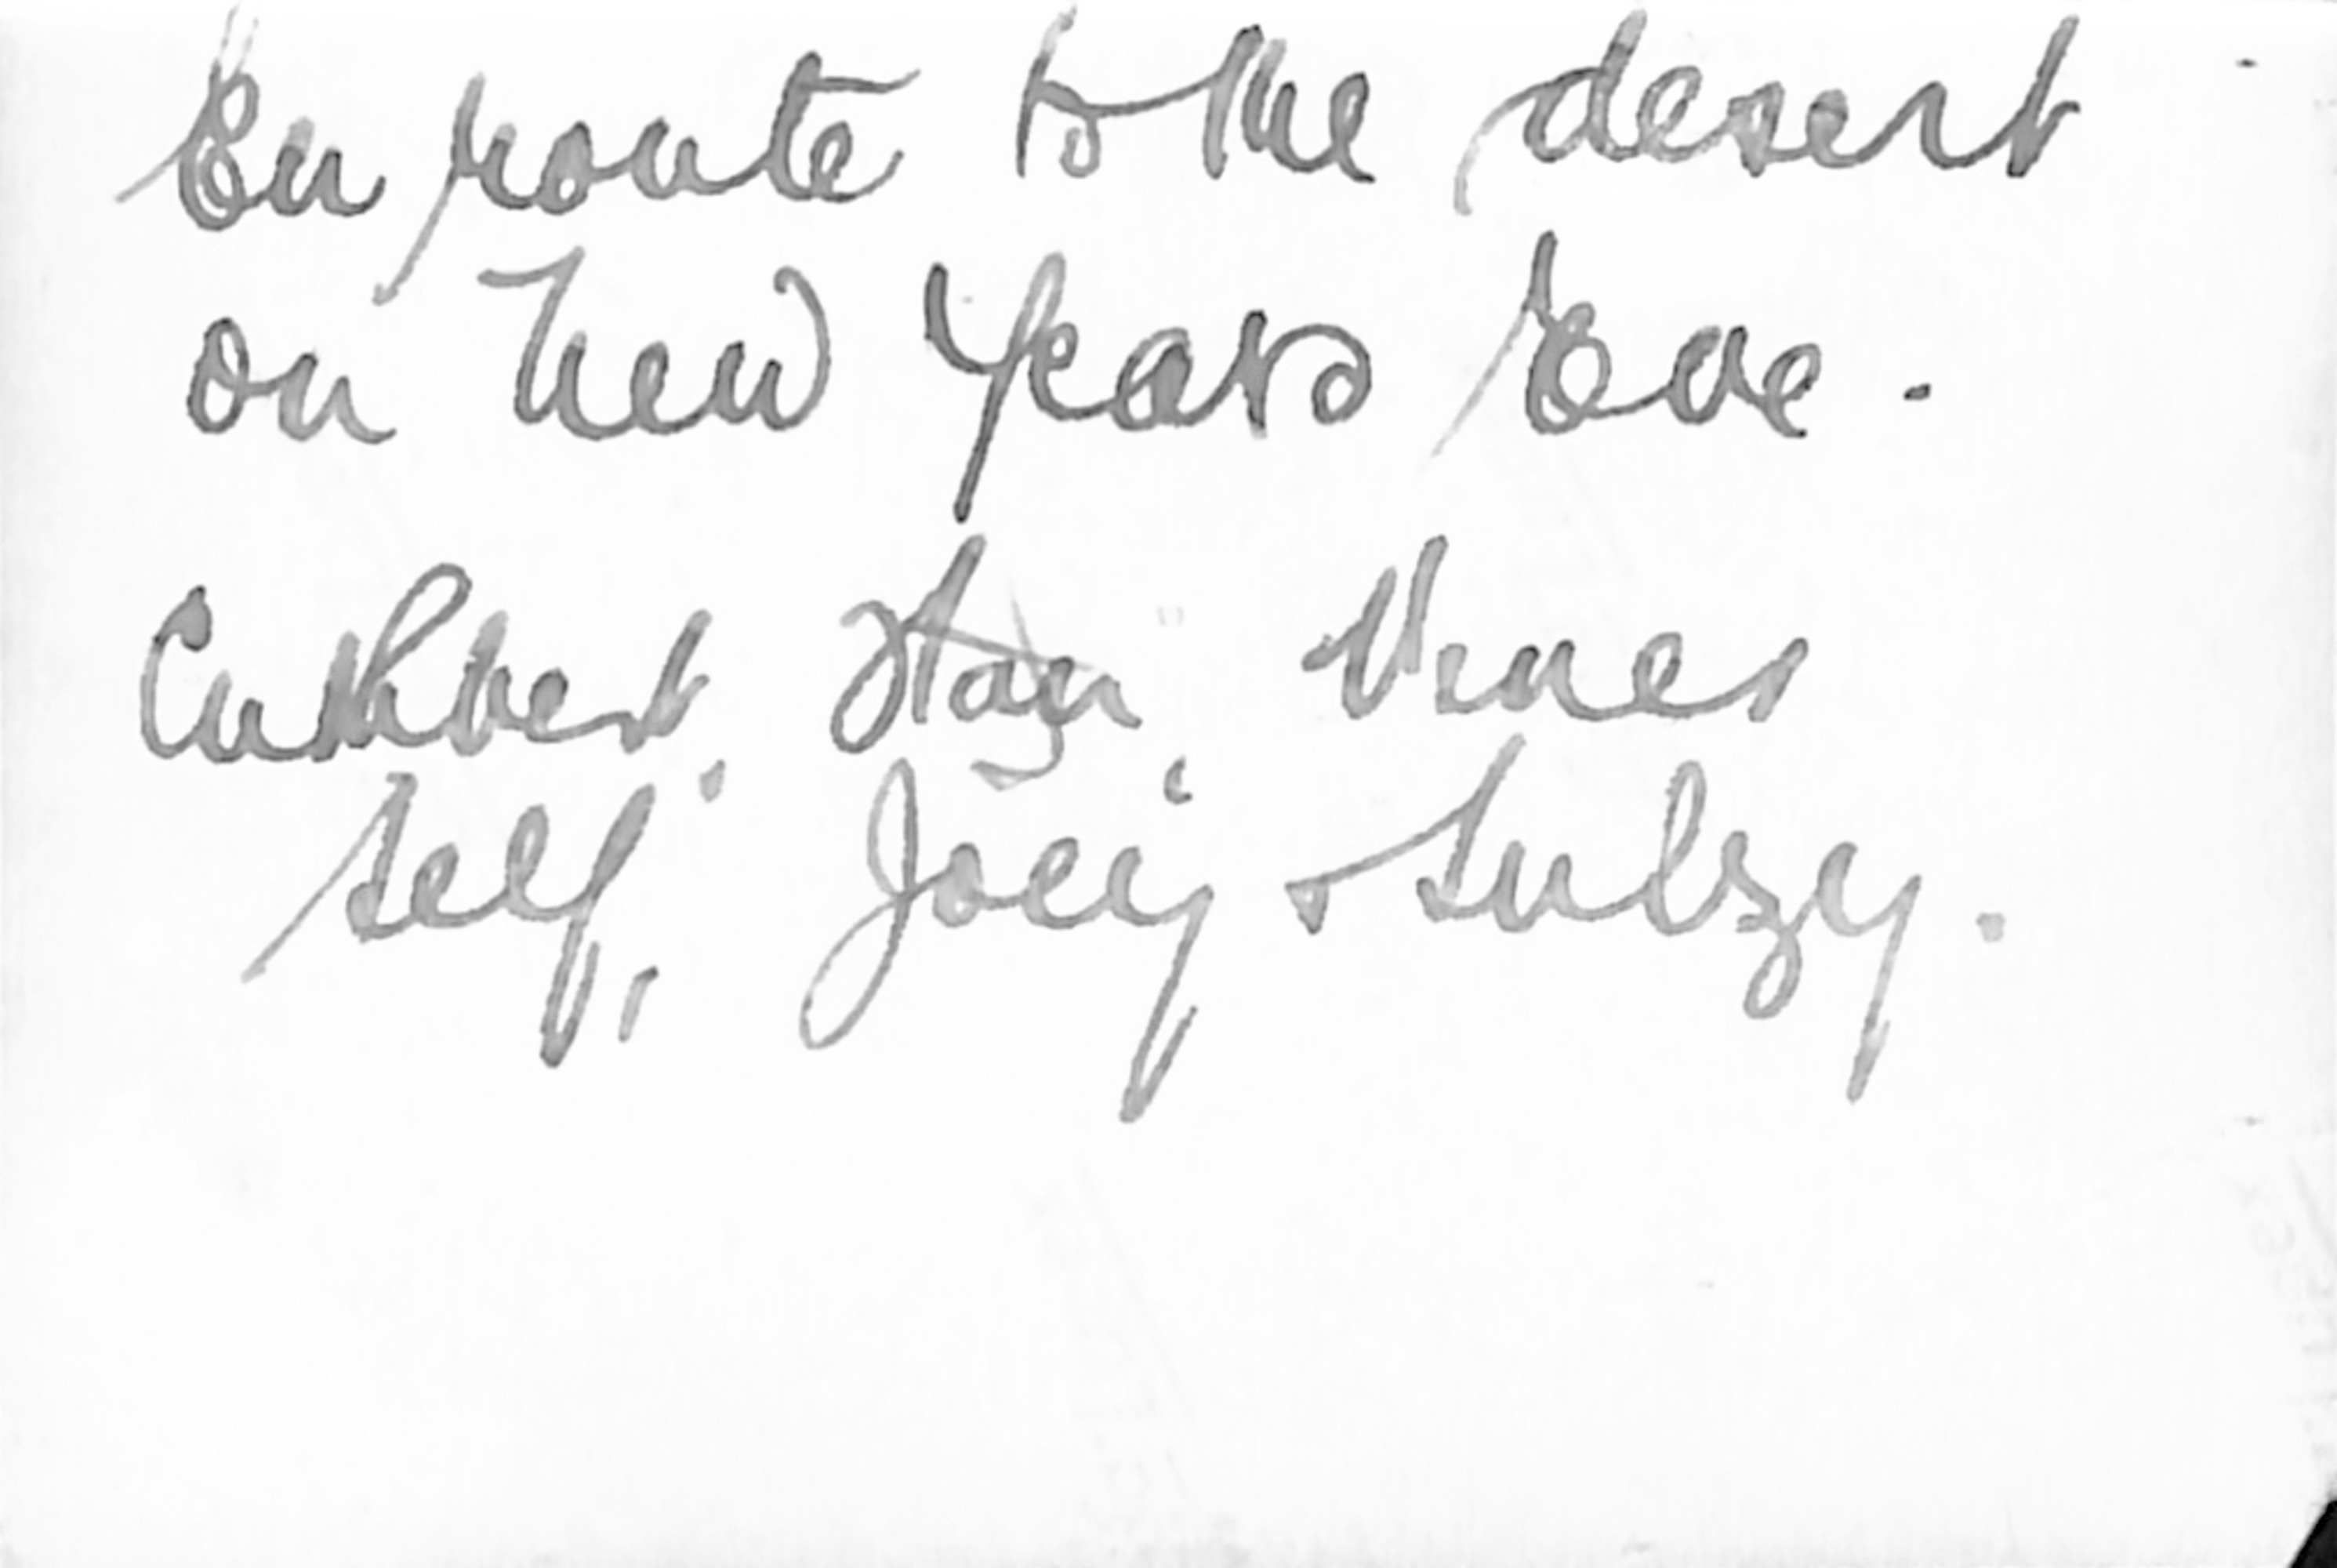 En route to the desert
on New Years Eve.
Cuthbert, Stan, Vines
Self, Joey & Sulzy.